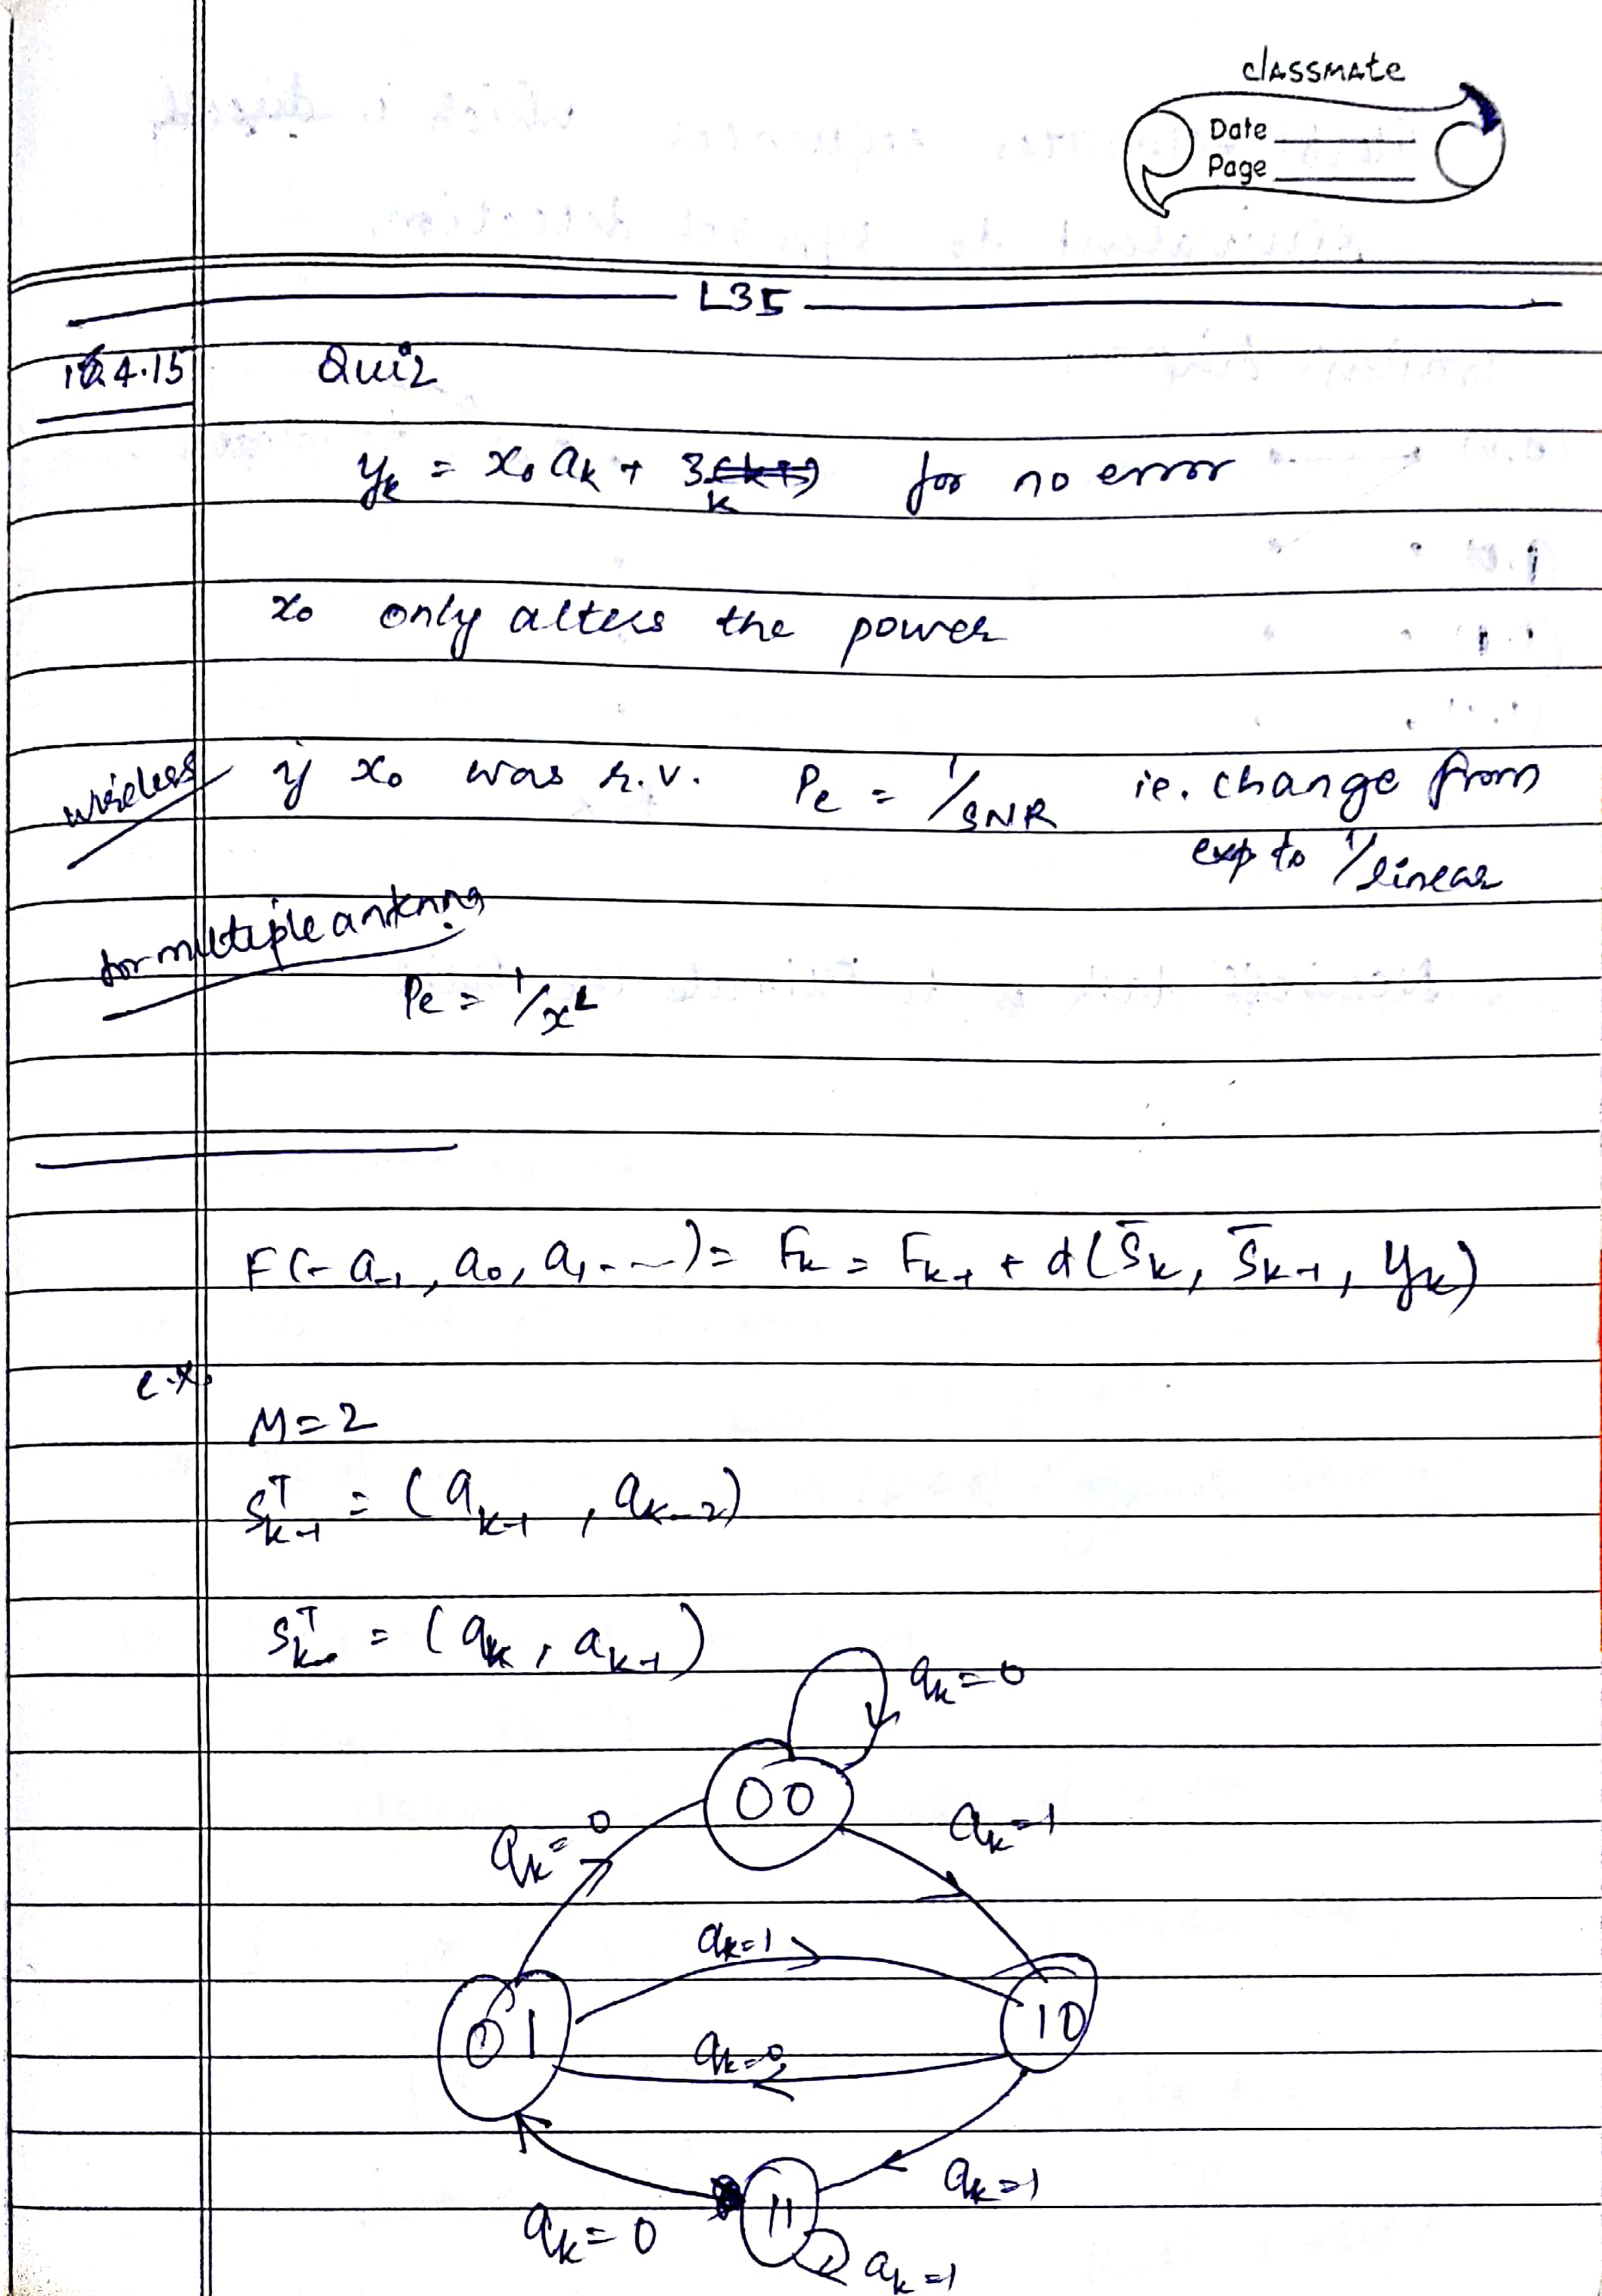 classmate
Date
Page
L35
4.15
Quiz
yₖ = x₀ aₖ + 3ₖ for no error
x₀ only alters the power
wireless
if x₀ was r.v. Pe = 1/SNR ie. change from
exp to 1/linear
for multiple antenna
Pe = 1/x^L
F(- a₋₁, a₀, a₁ - - -) = Fₖ = Fₖ₋₁ + d(S̄ₖ, S̄ₖ₋₁, yₖ)
e.x.
M = 2
Sᵀₖ₋₁ = (aₖ₋₁, aₖ₋₂)
Sᵀₖ = (aₖ, aₖ₋₁)
aₖ = 0
00
aₖ = 0
aₖ = 1
aₖ = 1
01
10
aₖ = 0
aₖ = 1
11
aₖ = 0
aₖ = 1